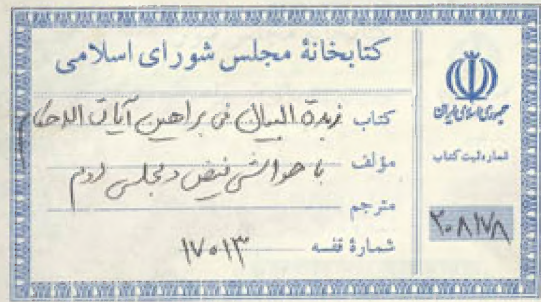 کتابخانهٔ مجلس شورای اسلامی
کتاب زبدة البیان فی براهین آیات الاحکام
مؤلف با حواشی فیض و مجلسی دوم
مترجم
شمارهٔ قفسه ۱۷۰۱۳
جمهوری اسلامی ایران
شماره ثبت کتاب
۲۰۸۱۷۸